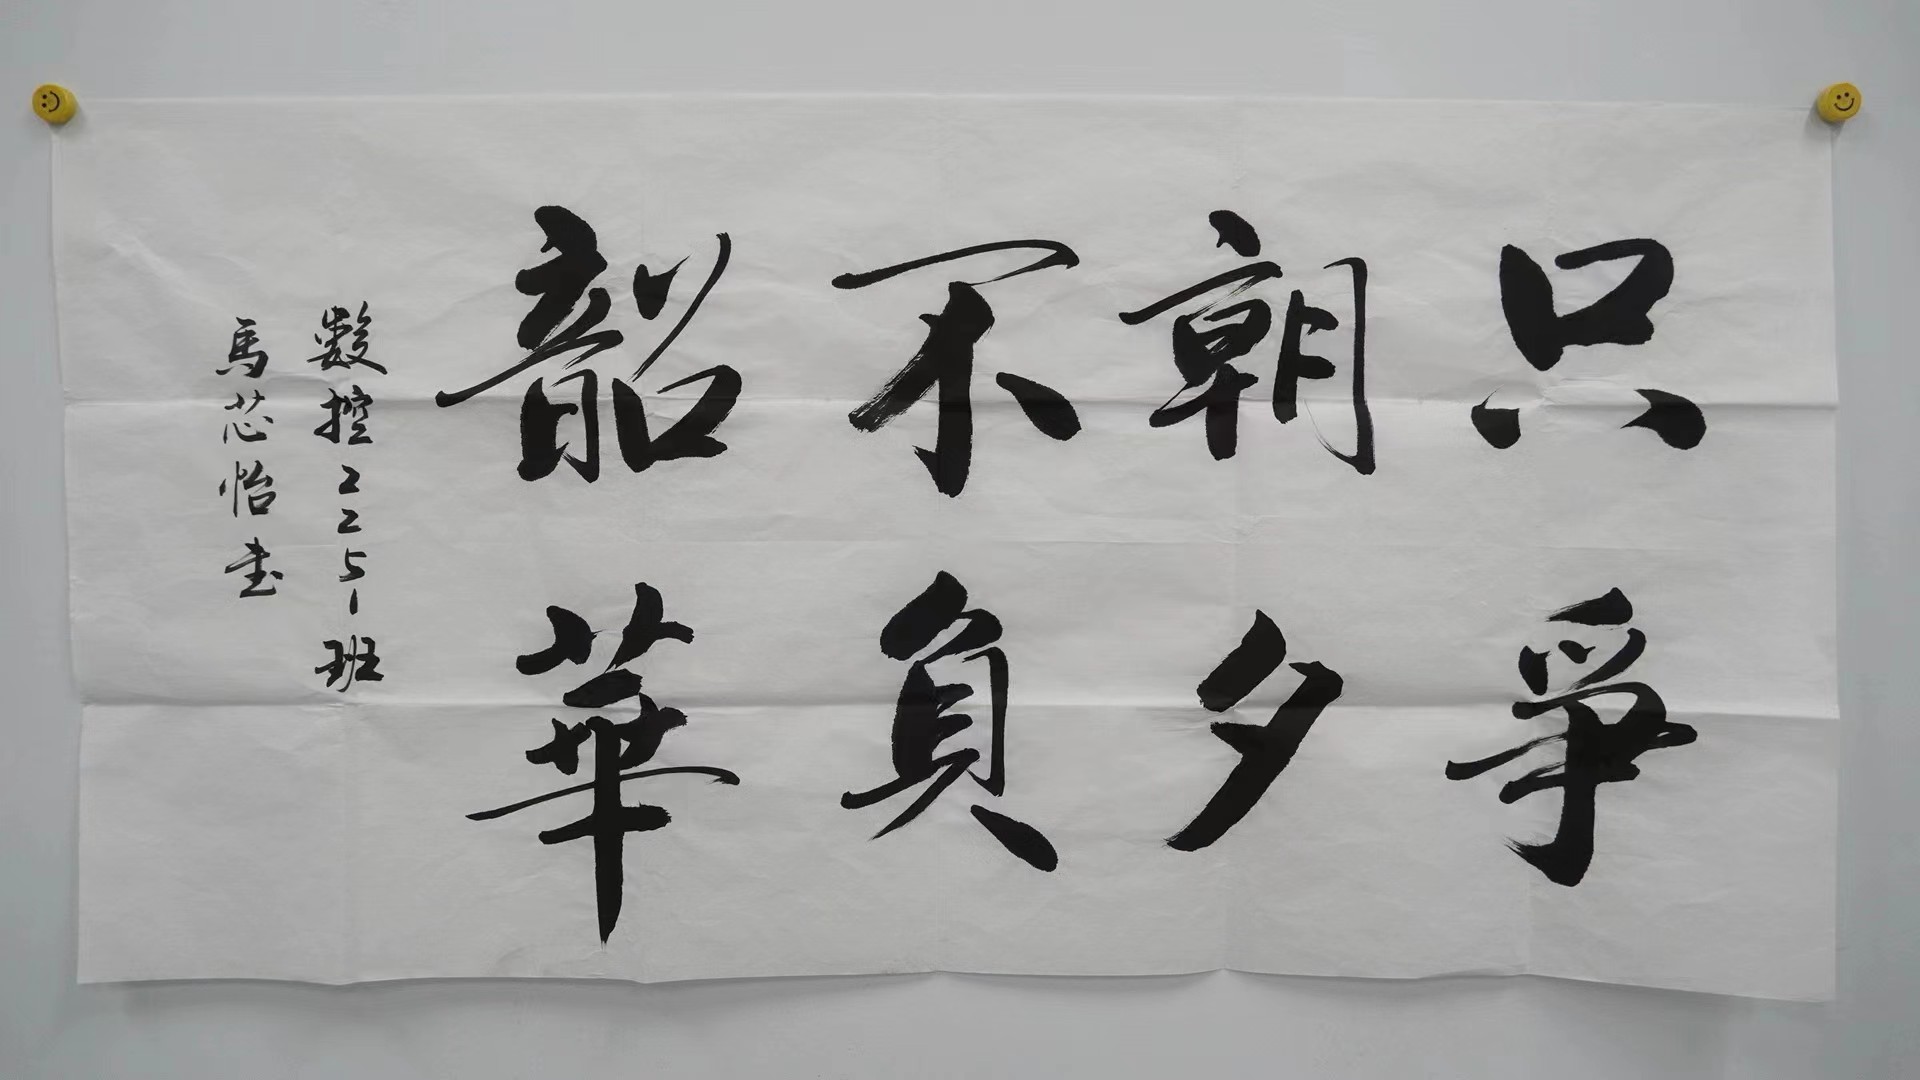 只争
朝夕
不負
韶華
数控2251班
馬芯怡书